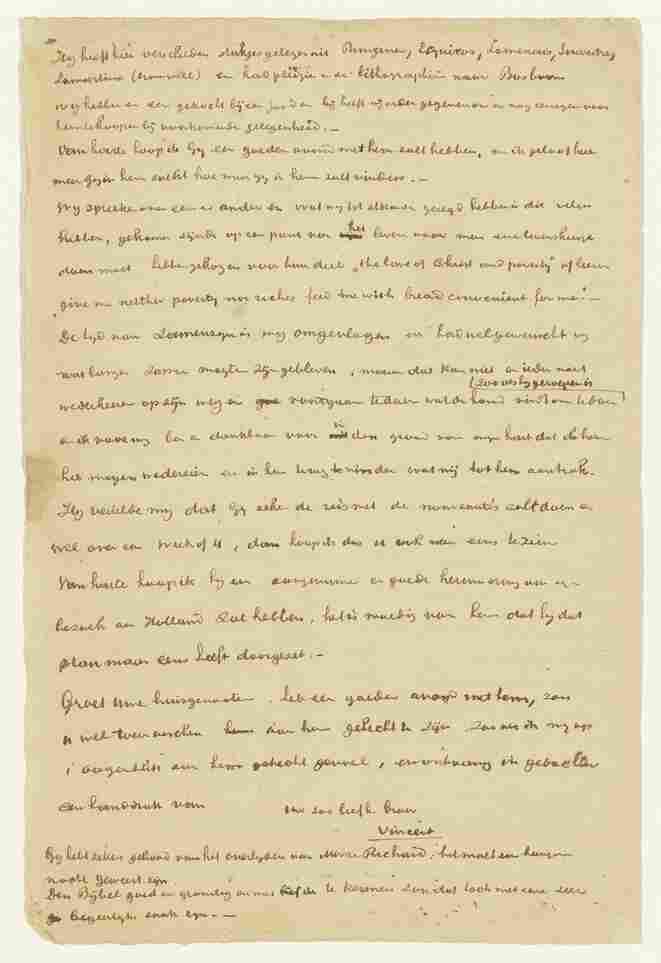 Hij heeft hier verscheiden stukjes gelezen uit Bungener, Esquiros, Lamennais, Souvestre,
Lamartine (Cromwell) en had plezier in de lithographiën naar Bosboom
wij hebben er een gekocht bij een jood en hij heeft mij order gegeven er nog eenigen voor
hem te koopen bij voorkomende gelegenheid. —
Van harte hoop ik Gij een goeden avond met hem zult hebben, en ik geloof hoe
meer gij in hem zoekt hoe meer gij in hem zult vinden. —
Wij spraken over een en ander en wat wij tot elkaar gezegd hebben is dit velen
hebben, gekomen zijnde op een punt van het leven waar men eene keus
doen moet hebben gekozen voor hun deel „the love of Christ and poverty" of liever
„give me neither poverty nor riches feed me with bread convenient for me". —
De tijd van zamenzijn is mij omgevlogen en had wel gewenscht wij
wat langer zamen mogten zijn gebleven, maar dat kan niet en ieder moet
(zooals hij geroepen is
wederkeeren op zijn weg en voortgaan te doen wat de hand vindt om te doen)
en ik voor mij ben er dankbaar voor in den grond van mijn hart dat ik hem
heb mogen wederzien en in hem terug te vinden wat mij tot hem aantrok.
Hij vertelde mij dat Gij zeker de reis met de nouveautés zult doen en
wel over een week of 4, dan hoop ik dus U ook weer eens te zien
Van harte hoop ik hij een aangename en goede herinnering aan zijn
bezoek aan Holland zal hebben, het is moedig van hem dat hij dat
plan maar eens heeft doorgezet. —
Groet Uwe huisgenooten. heb een goeden avond met hem, zou
U wel toewenschen aan hem gehecht te zijn zooals ik mij op
't oogenblik aan hem gehecht gevoel, en ontvang in gedachten
een handdruk van Uw zoo liefh. broer
Vincent
Gij hebt zeker gehoord van het overlijden van Mevr Richard, het moet een kanjer
nooit geweest zijn.
Den Bijbel goed en grondig en met liefde te kennen zou dat toch niet eene zeer
begeerlijke zaak zijn. —